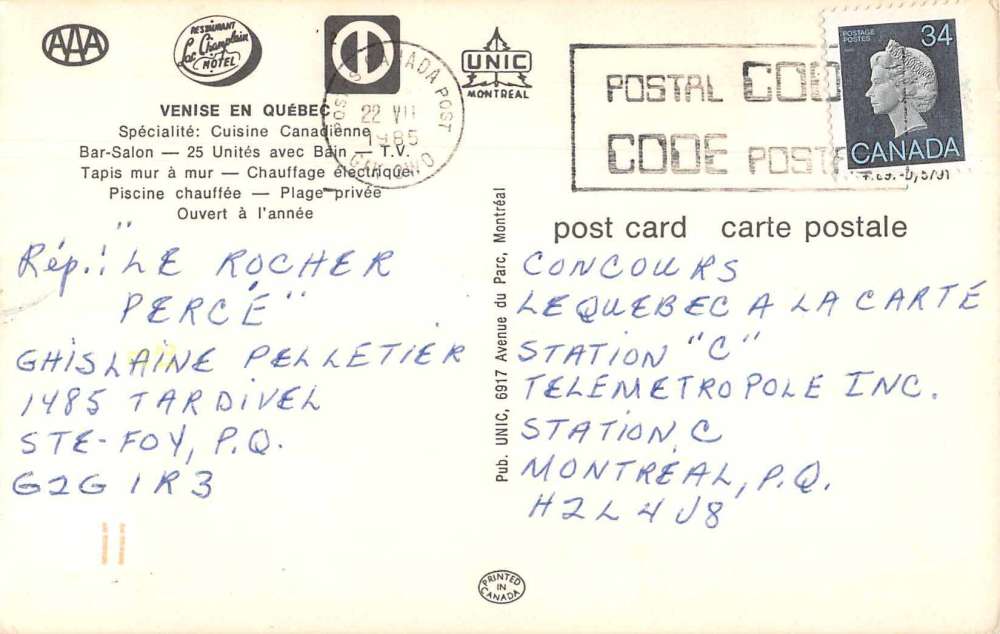 AAA
RESTAURANT
Lac Champlain
MOTEL
UNIC
MONTREAL
VENISE EN QUÉBEC
Spécialité: Cuisine Canadienne
Bar-Salon — 25 Unités avec Bain — T.V.
Tapis mur à mur — Chauffage électrique
Piscine chauffée — Plage privée
Ouvert à l'année
CANADA POST
22 VII
1985
POSTAL CODE
CODE POSTAL
POSTAGE
POSTES
34
CANADA
post card carte postale
Rép.: "LE ROCHER
PERCÉ"
GHISLAINE PELLETIER
1485 TARDIVEL
STE-FOY, P.Q.
G2G 1R3
Pub. UNIC, 6917 Avenue du Parc, Montréal
CONCOURS
LE QUEBEC A LA CARTE
STATION "C"
TELEMETROPOLE INC.
STATION C
MONTRÉAL, P.Q.
H2L 4J8
PRINTED
IN
CANADA